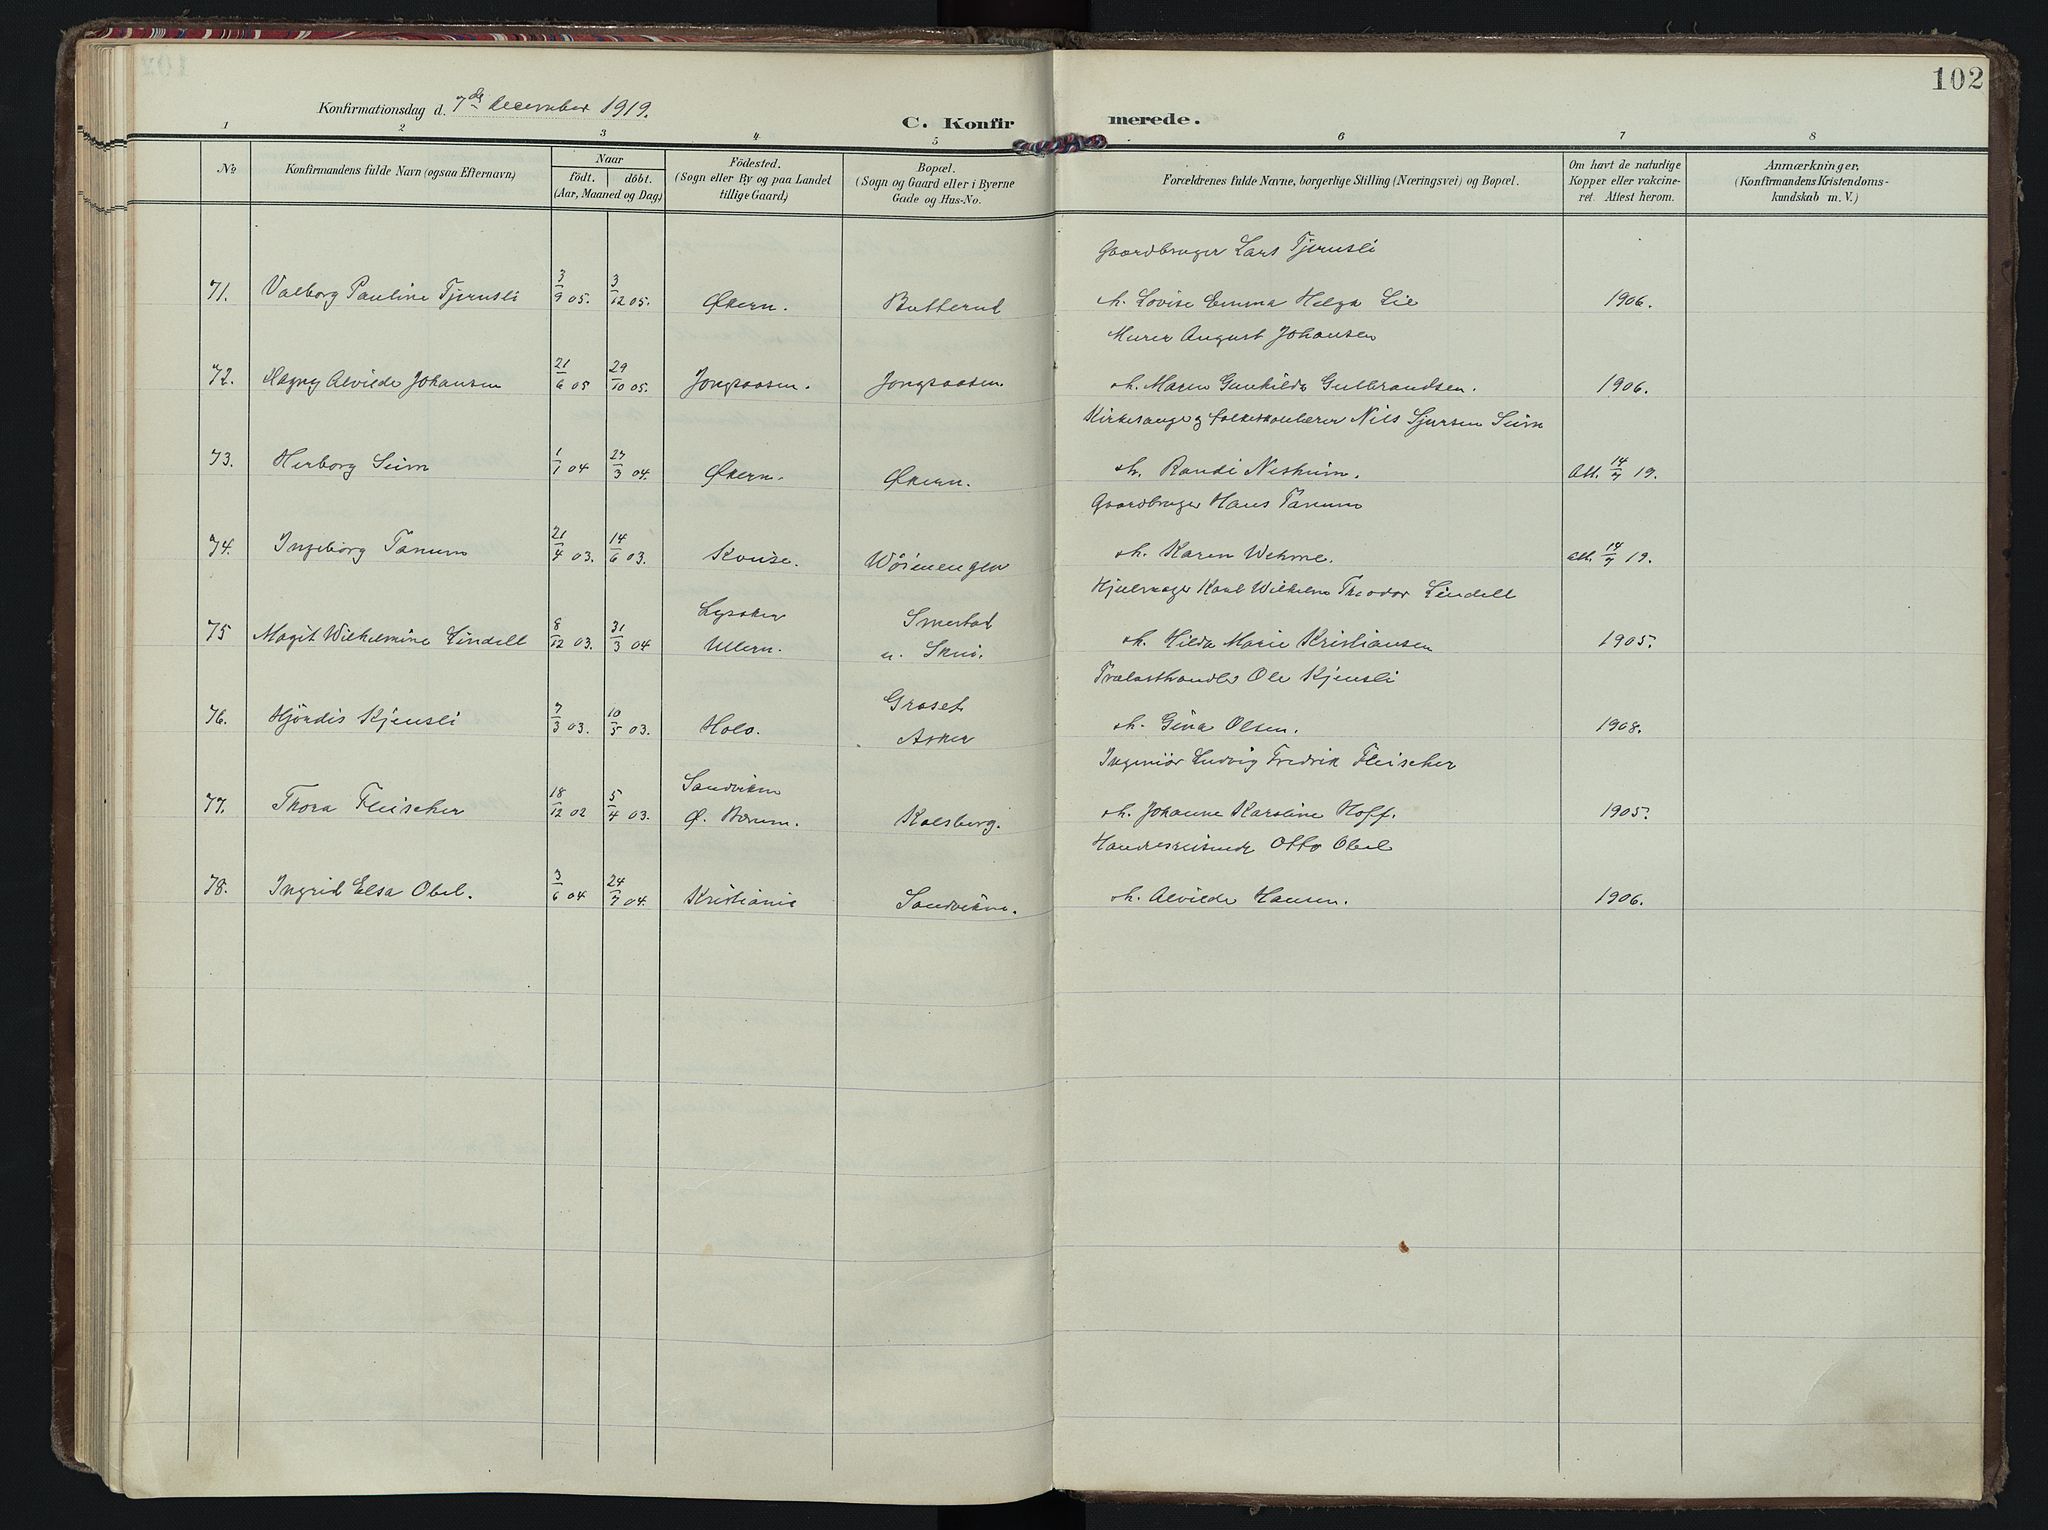 102
Konfirmationsdag d. 7de December 1919.
C. Konfirmerede.
1 2 3 4 5 6 7 8
No
Konfirmandens fulde Navn (ogsaa Efternavn)
Naar
födt. döbt.
(Aar, Maaned og Dag)
Födested.
(Sogn eller By og paa Landet
tillige Gaard)
Bopæl.
(Sogn og Gaard eller i Byerne
Gade og Hus-No.
Forældrenes fulde Navne, borgerlige Stilling (Næringsvei) og Bopæl.
Om havt de naturlige
Kopper eller vakcine-
ret. Attest herom.
Anmærkninger.
(Konfirmandens Kristendoms-
kundskab m. V.)
Gaardbruger Lars Tjernsli
71. Valborg Pauline Tjernsli 3/9 05. 3/12 05. Økern. Butterud h. Lovise Emma Helga Lie 1906.
Murer August Johansen
72. Hagny Alvilde Johansen 21/6 05 29/10 05. Jongsaasen. Jongsaasen h. Maren Gunhilde Gulbrandsen. 1906.
Kirkesanger og Folkeskolelærer Nils Sjursen Seim
73. Herborg Seim 1/1 04 27/3 04. Økern. Økern. h. Randi Nesheim. Att. 14/7 19.
Gaardbruger Hans Tanum
74. Ingeborg Tanum 21/4 03. 14/6 03. h. Karen Wehme. Att. 14/7 19.
Hjulmager Karl Wilhelm Theodor Lindell
Lysaker Smestad
75 Magit Wilhelmine Lindell 8/12 03. 31/3 04 Ullern. h. Hilda Marie Kristiansen 1905.
Trælasthandler Ole Kjensli
Groset
76. Hjördis Kjensli 7/3 03. 10/5 03. Holo. Asker h. Gina Olsen. 1908.
Ingeniör Ludvig Fredrik Fleischer
Sandviken
77. Thora Fleischer 18/12 02 5/4 03. Ø. Bærum. Kolsberg. h. Johanne Karoline Hoff. 1905.
Handelsreisende Otto Obel
78. Ingrid Elsa Obel. 3/6 04 24/7 04. Kristiania Sandviken. h. Alvilde Hansen. 1906.